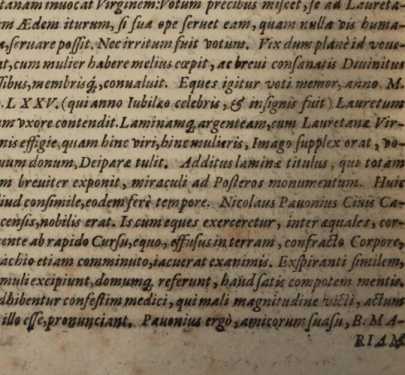 tanam inuocat Virginem: Votum precibus miscet, se ad Laureta-
m Ædem iturum, si sua ope seruet eam, quam nulla vis huma-
a, seruare possit. Nec irritum fuit votum. Vix dum planè id voue-
at, cum mulier habere melius cœpit, ac breui consanatis Diuinitus
sibus, membrisq́, conualuit. Eques igitur voti memor, anno M.
D. L XXV. (qui anno Iubilæo celebris, & insignis fuit) Lauretum
um vxore contendit. Laminamq́ argenteam, cum Lauretanæ Vir-
nis effigie, quam hinc viri, hinc mulieris, Imago supplex orat, vo-
uum donum, Deiparæ tulit. Additus laminæ titulus, qui totam
m breuiter exponit, miraculi ad Posteros monumentum. Huic
iud consimile, eodem ferè tempore. Nicolaus Pauonius Ciuis Ca-
censis, nobilis erat. Is cum eques exerceretur, inter æquales, cor-
ente ab rapido Cursu, equo, effusus in terram, confracto Corpore,
achio etiam comminuto, iacuerat exanimis. Exspiranti similem,
muli excipiunt, domumq́, referunt, haud satis compotem mentis.
dhibentur confestim medici, qui mali magnitudine visa, actum
illo esse, pronunciant. Pauonius ergò, amicorum suasu, B. MA-
RIAM